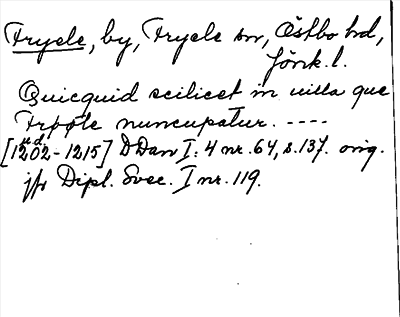 Fryele, by, Fryele sn, Östbo hd,
Jönk. l.
Quicquid scilicet in uilla que
Frøøle nuncupatur. ----
u.d.
[1202-1215] DDan I:4 nr. 64, s. 137. orig.
jfr Dipl. Svec. I nr. 119.